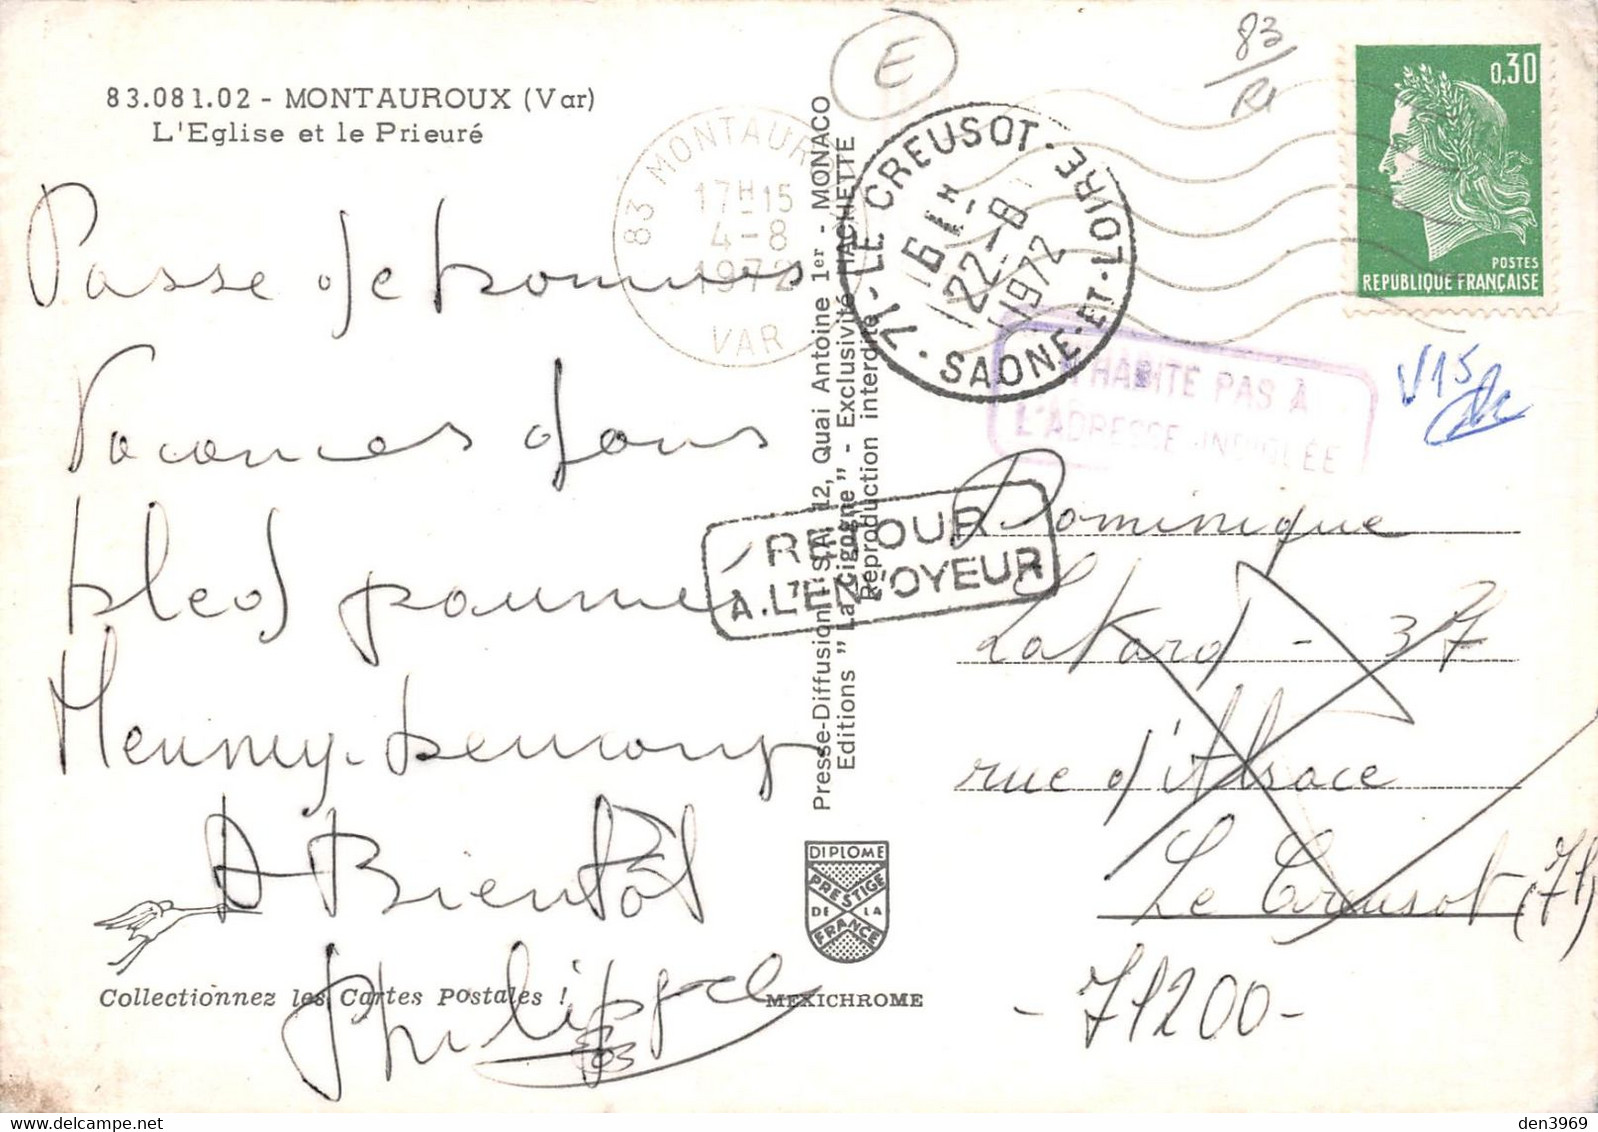 83.081.02 - MONTAUROUX (Var)
L'Eglise et le Prieuré
Passe de bonnes
Vacances dans
bled paumé
A Bientôt
Philippe
Collectionnez les Cartes Postales !
83 MONTAUROUX
17H15
4-8
1972
VAR
E
83
Presse-Diffusion S.A. 12, Quai Antoine 1er - MONACO
Editions "La Cigogne" - Exclusivité HACHETTE
Reproduction interdite
71 - LE CREUSOT - SAONE-ET-LOIRE
16H
22-8
1972
0,30
POSTES
REPUBLIQUE FRANÇAISE
N'HABITE PAS À
L'ADRESSE INDIQUÉE
V15
RETOUR
A.L'ENVOYEUR
Dominique
37
rue d'Alsace
Le Creusot (71)
- 71200 -
DIPLOME
PRESTIGE
DE LA
FRANCE
MEXICHROME
den3969